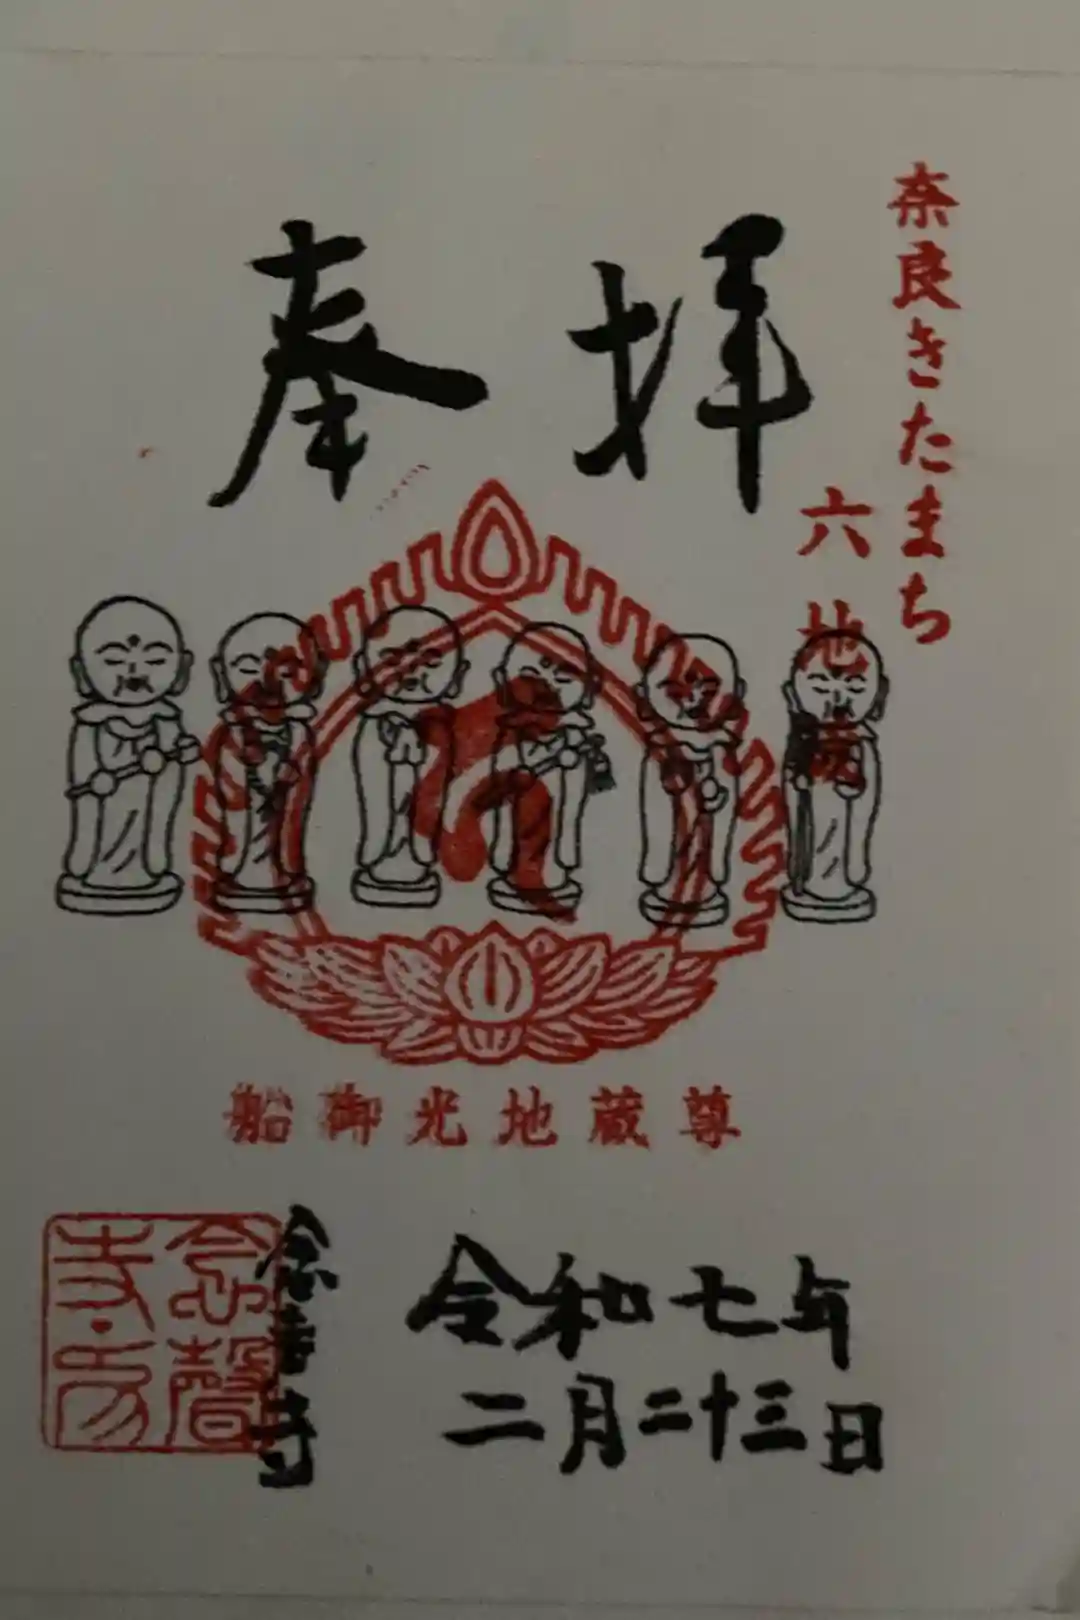 奈良きたまち
六地蔵
奉拝
船御光地蔵尊
念声寺
令和七年
二月二十三日